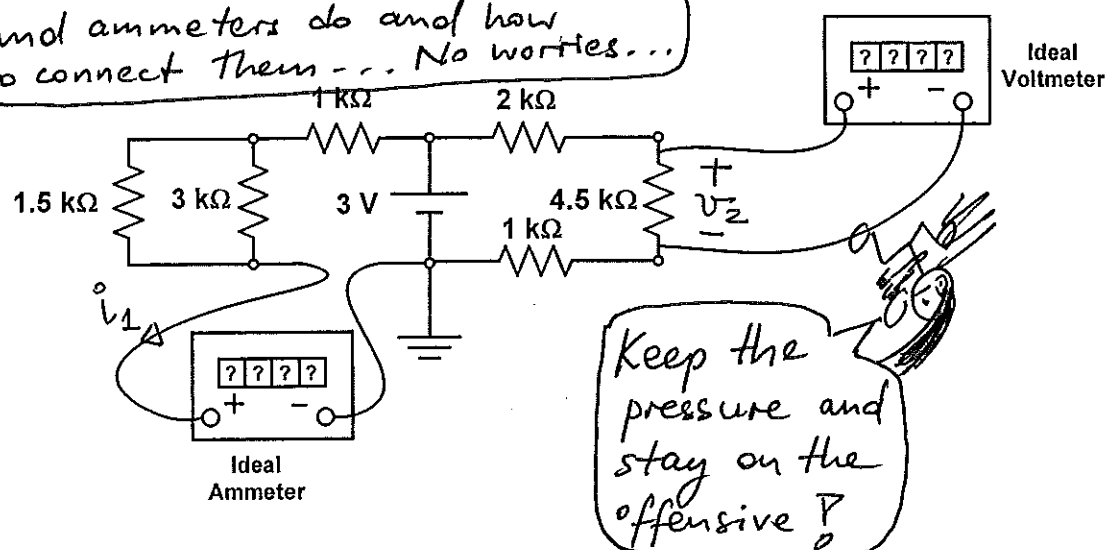 and ammeters do and how
o connect them... No worries...
1 kΩ
2 kΩ
? ? ? ?
+ -
Ideal
Voltmeter
1.5 kΩ
3 kΩ
3 V
4.5 kΩ
+
v2
-
1 kΩ
i1
? ? ? ?
+ -
Ideal
Ammeter
Keep the
pressure and
stay on the
offensive !